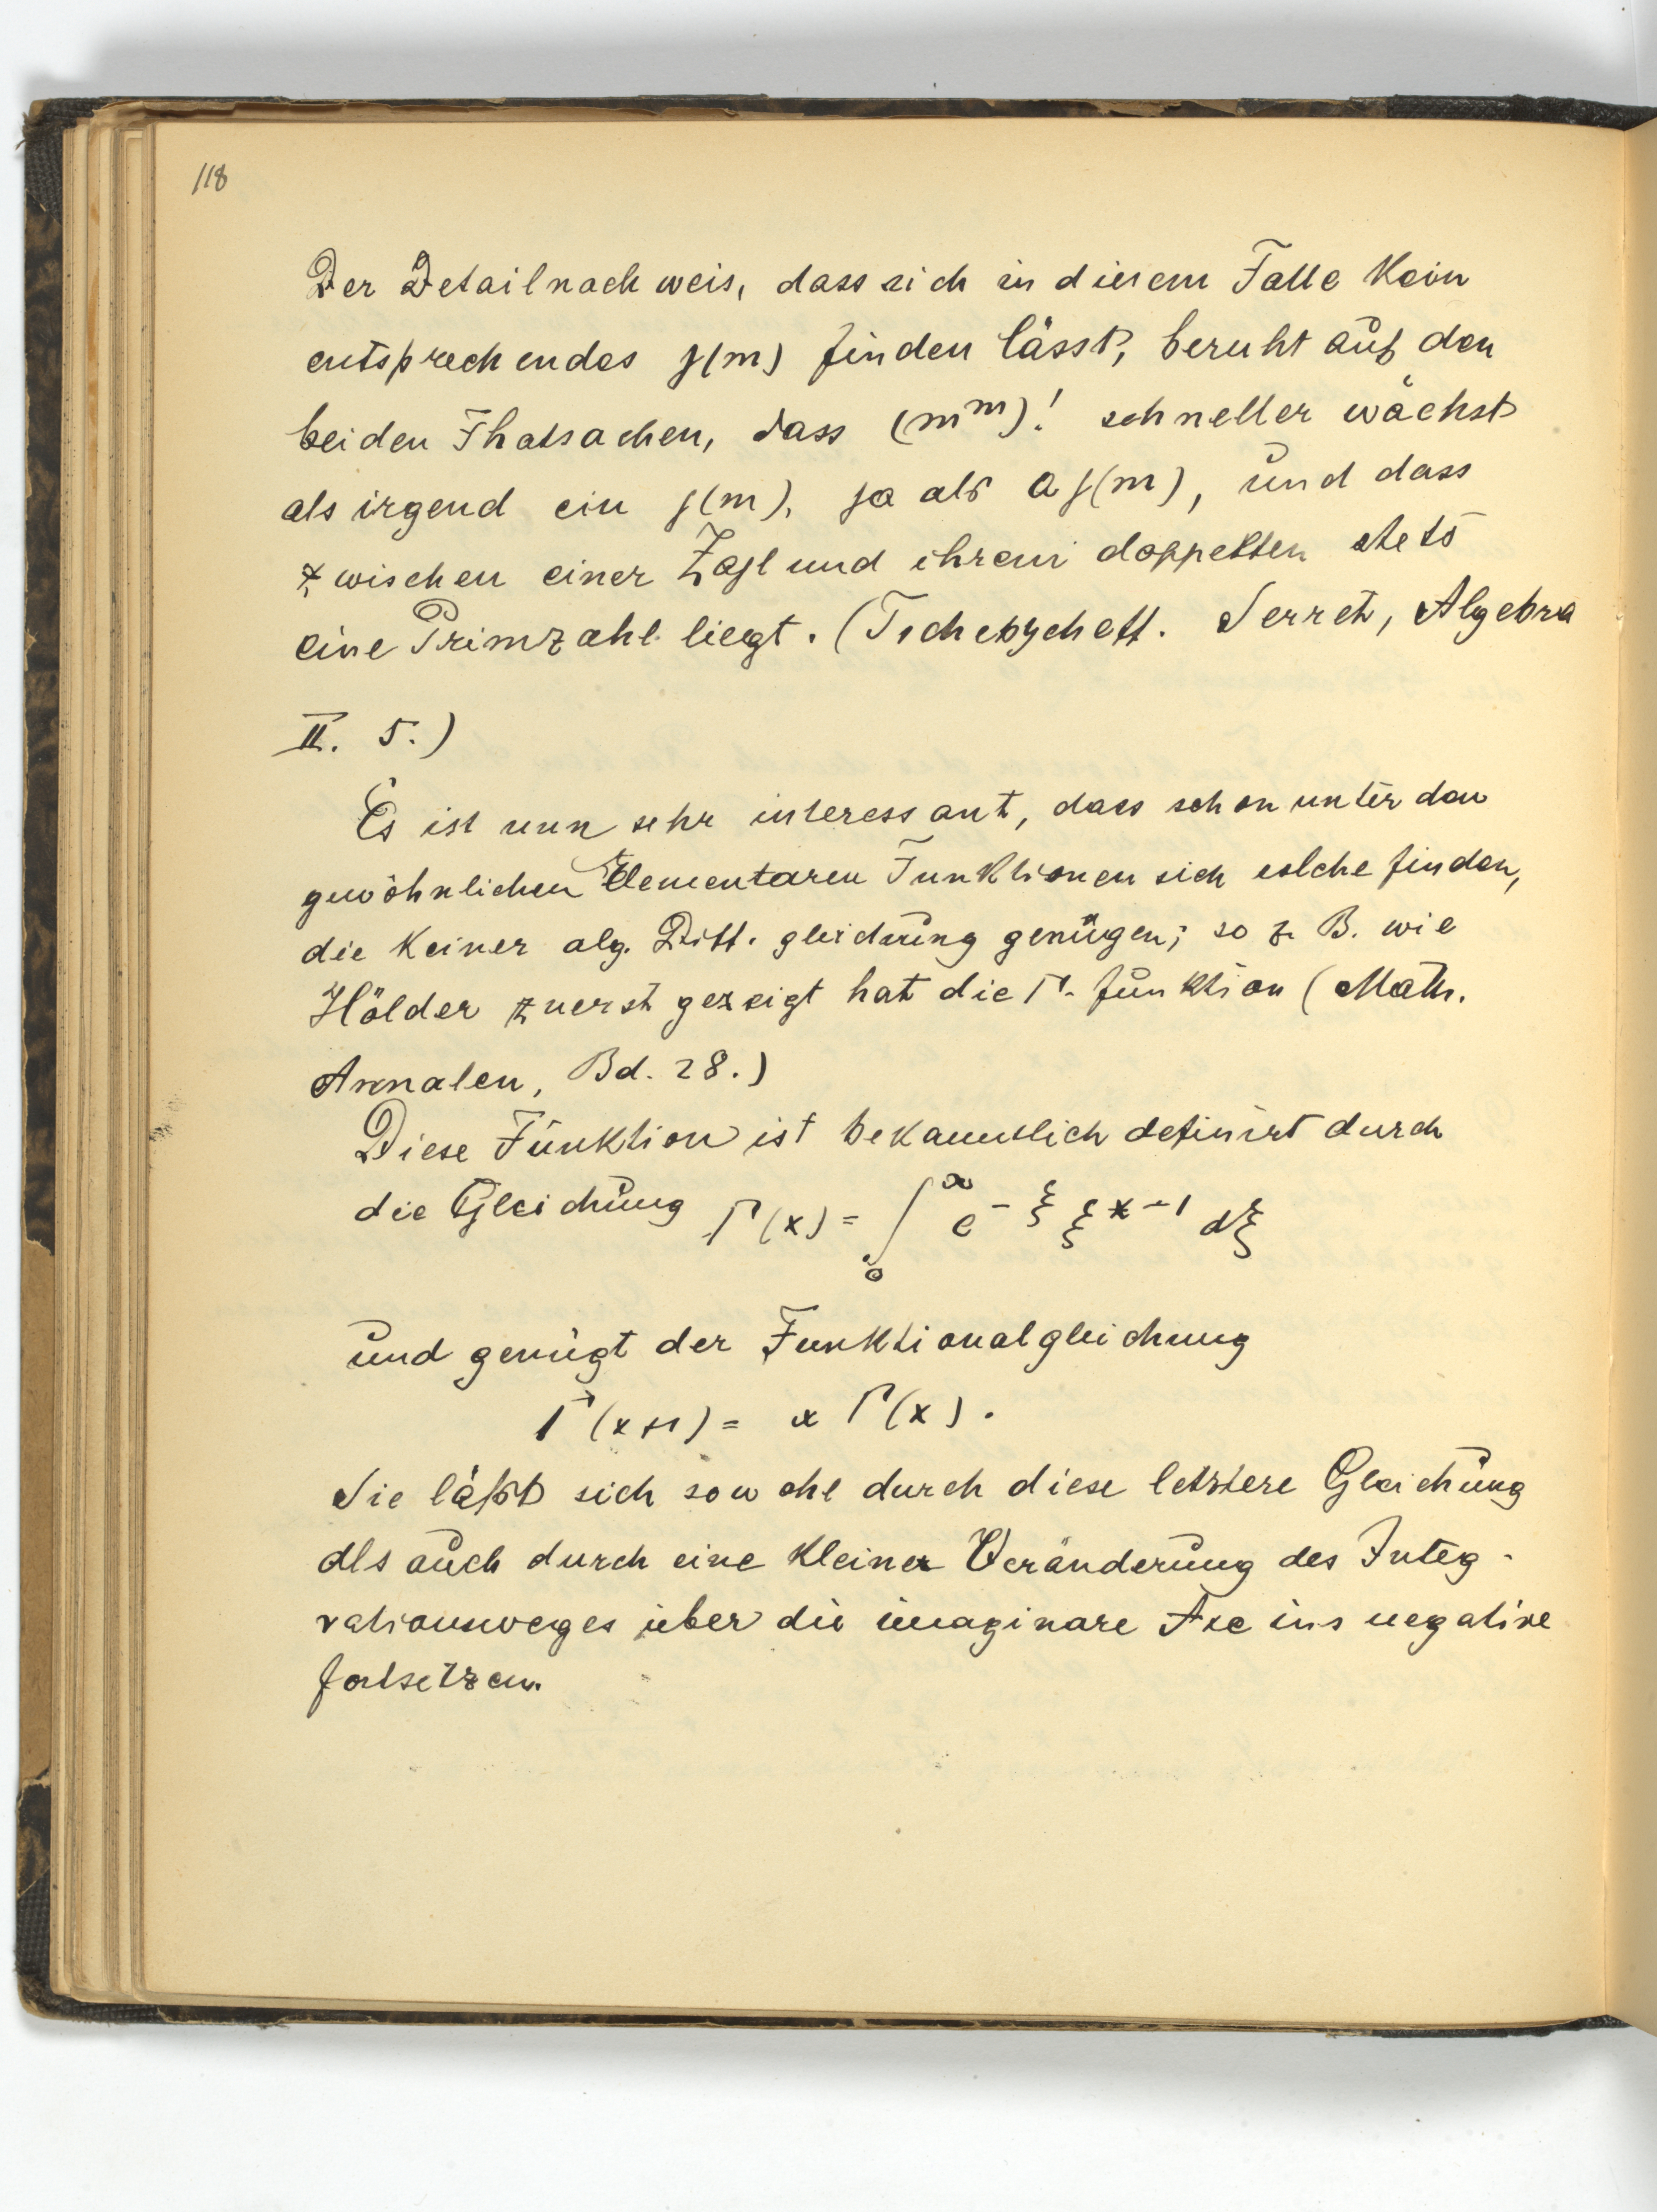 118
Der Detailnachweis, dass sich in diesem Falle kein
entsprechendes g(m) finden lässt, beruht auf den
beiden Thatsachen, dass (m^m)! schneller wächst
als irgend ein g(m), ja als a g(m), und dass
zwischen einer Zahl und ihrem doppelten stets
eine Primzahl liegt. (Tschebyscheff. Serret, Algebra
II. 5.)
Es ist nun sehr interessant, dass schon unter den
gewöhnlichen Elementaren Funktionen sich solche finden,
die keiner alg. Diff. gleichung genügen; so z. B. wie
Hölder zuerst gezeigt hat die Γ-funktion (Math.
Annalen, Bd. 28.)
Diese Funktion ist bekanntlich definirt durch
die Gleichung Γ(x) = ∫_0^∞ e^{-ξ} ξ^{x-1} dξ
und genügt der Funktionalgleichung
Γ(x+1) = x Γ(x).
Sie läßt sich sowohl durch diese letztere Gleichung
als auch durch eine kleine Veränderung des Integ-
rationsweges über die imaginäre Axe ins negative
fortsetzen.